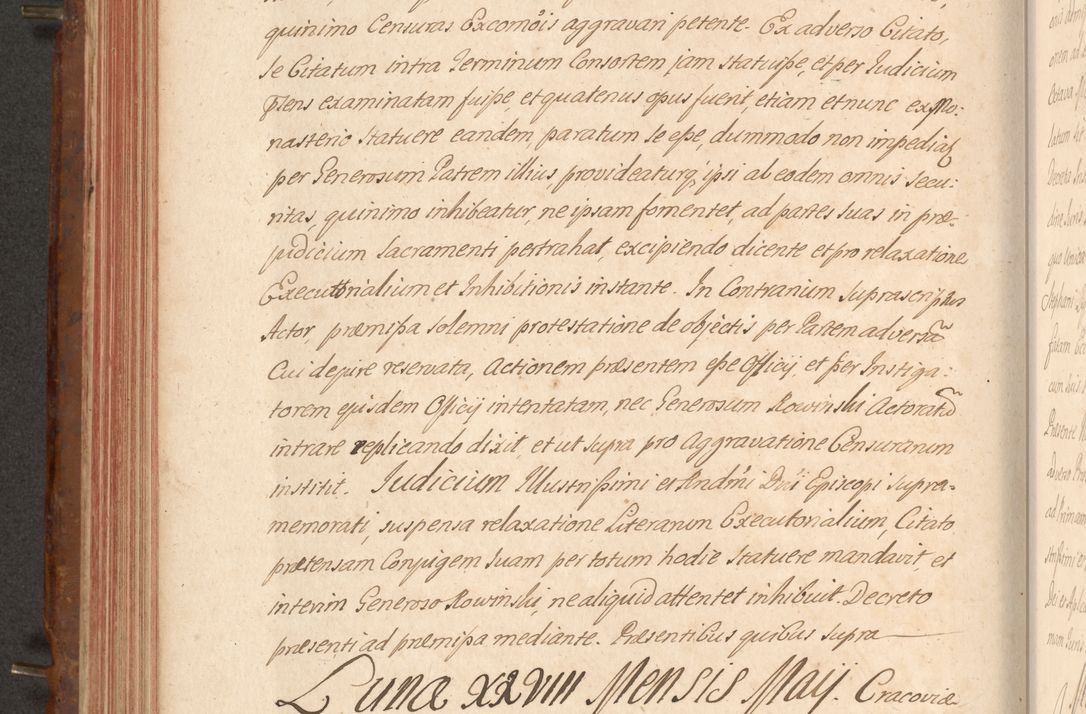 quinimo Censuras Excom̃ois aggravari petente. Ex adverso Citato,
se Citatum intra Terminum Consortem jam statuiſse, et per Iudicium
p̃sens examinatam fuiſse, et quatenus opus fuerit, etiam et nunc ex Mo:
nasterio statuere eandem, paratum se eſse, dummodo non impediat
per Generosum Patrem illius provideaturq; ipsi ab eodem omnis secu:
ritas, quinimo inhibeatur, ne ipsam fomentet, ad partes suas in præ-
judicium Sacramenti pertrahat, excipiendo dicente et pro relaxatione
Executorialium et Inhibitionis instante. In Contrarium suprascriptus
Actor, præmiſsa solemni protestatione de objectis per Partem adversã
Cui de jure reservata, Actionem præsentem eſse Officij et per Instiga:
torem ejusdem Officij intentatam, nec Generosum Rowinski Actoratũ
intrare replicando dixit, et ut supra pro Aggravatione Censurarum
institit. Iudicium Illustriſsimi et Rndm̃i Dñi Episcopi supra-
memorati, suspensa relaxatione Literarum Executorialium, Citato
prætensam Conjugem suam per totum hodie statuere mandavit, et
interim Generoso Rowinski, ne aliquid attentet inhibuit. Decreto
præsenti ad præmiſsa mediante. Præsentibus quibus supra
Lunæ XXVIII Mensis Maij. Cracoviæ